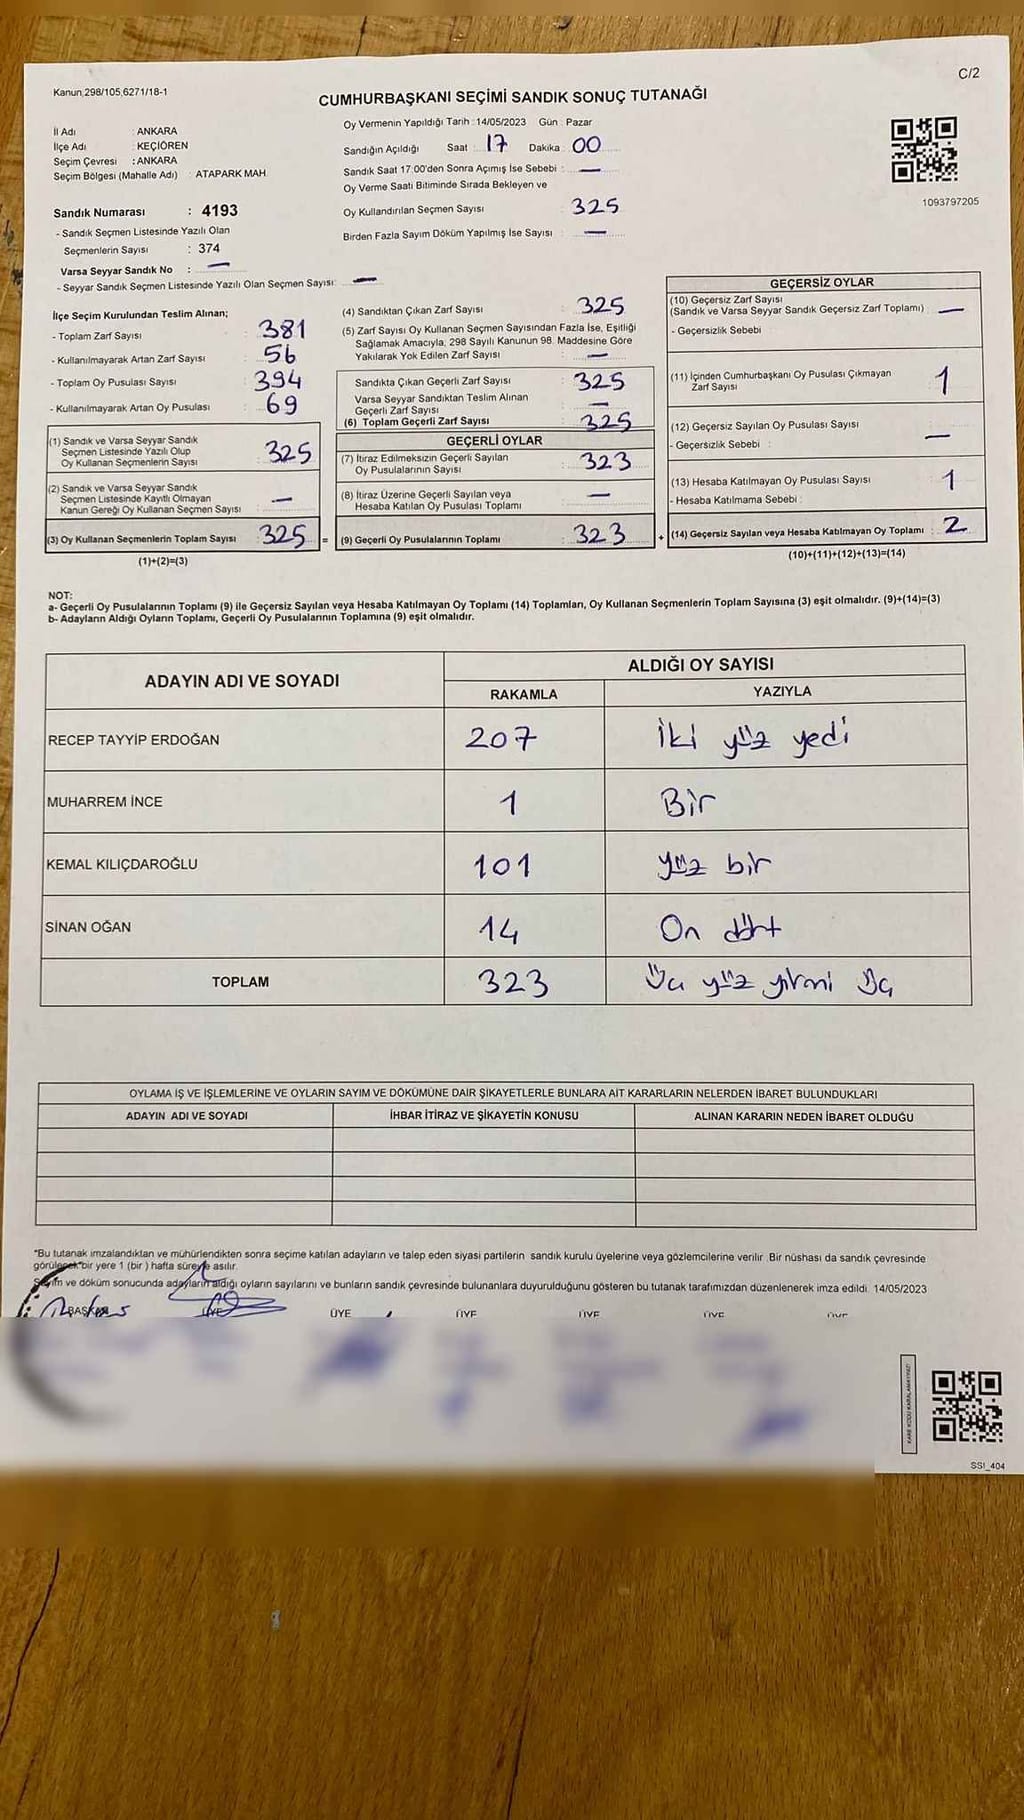 Kanun,298/105,6271/18-1
C/2
CUMHURBAŞKANI SEÇİMİ SANDIK SONUÇ TUTANAĞI
İl Adı : ANKARA
İlçe Adı : KEÇİÖREN
Seçim Çevresi : ANKARA
Seçim Bölgesi (Mahalle Adı) : ATAPARK MAH
Sandık Numarası : 4193
- Sandık Seçmen Listesinde Yazılı Olan
Seçmenlerin Sayısı : 374
Varsa Seyyar Sandık No : —
- Seyyar Sandık Seçmen Listesinde Yazılı Olan Seçmen Sayısı: —
Oy Vermenin Yapıldığı Tarih : 14/05/2023 Gün : Pazar
Sandığın Açıldığı Saat : 17 Dakika : 00
Sandık Saat 17:00'den Sonra Açımış İse Sebebi : —
Oy Verme Saati Bitiminde Sırada Bekleyen ve
Oy Kullandırılan Seçmen Sayısı : 325
Birden Fazla Sayım Döküm Yapılmış İse Sayısı : —
1093797205
İlçe Seçim Kurulundan Teslim Alınan;
- Toplam Zarf Sayısı : 381
- Kullanılmayarak Artan Zarf Sayısı : 56
- Toplam Oy Pusulası Sayısı : 394
- Kullanılmayarak Artan Oy Pusulası : 69
(1) Sandık ve Varsa Seyyar Sandık
Seçmen Listesinde Yazılı Olup
Oy Kullanan Seçmenlerin Sayısı : 325
(2) Sandık ve Varsa Seyyar Sandık
Seçmen Listesinde Kayıtlı Olmayan
Kanun Gereği Oy Kullanan Seçmen Sayısı : —
(3) Oy Kullanan Seçmenlerin Toplam Sayısı : 325 =
(1)+(2)=(3)
(4) Sandıktan Çıkan Zarf Sayısı : 325
(5) Zarf Sayısı Oy Kullanan Seçmen Sayısından Fazla İse, Eşitliği
Sağlamak Amacıyla, 298 Sayılı Kanunun 98. Maddesine Göre
Yakılarak Yok Edilen Zarf Sayısı : —
Sandıkta Çıkan Geçerli Zarf Sayısı : 325
Varsa Seyyar Sandıktan Teslim Alınan
Geçerli Zarf Sayısı : —
(6) Toplam Geçerli Zarf Sayısı : 325
GEÇERLİ OYLAR
(7) İtiraz Edilmeksizin Geçerli Sayılan
Oy Pusulalarının Sayısı : 323
(8) İtiraz Üzerine Geçerli Sayılan veya
Hesaba Katılan Oy Pusulası Toplamı : —
(9) Geçerli Oy Pusulalarının Toplamı : 323 +
GEÇERSİZ OYLAR
(10) Geçersiz Zarf Sayısı
(Sandık ve Varsa Seyyar Sandık Geçersiz Zarf Toplamı) : —
- Geçersizlik Sebebi :
(11) İçinden Cumhurbaşkanı Oy Pusulası Çıkmayan
Zarf Sayısı : 1
(12) Geçersiz Sayılan Oy Pusulası Sayısı : —
- Geçersizlik Sebebi :
(13) Hesaba Katılmayan Oy Pusulası Sayısı : 1
- Hesaba Katılmama Sebebi :
(14) Geçersiz Sayılan veya Hesaba Katılmayan Oy Toplamı : 2
(10)+(11)+(12)+(13)=(14)
NOT:
a- Geçerli Oy Pusulalarının Toplamı (9) ile Geçersiz Sayılan veya Hesaba Katılmayan Oy Toplamı (14) Toplamları, Oy Kullanan Seçmenlerin Toplam Sayısına (3) eşit olmalıdır. (9)+(14)=(3)
b- Adayların Aldığı Oyların Toplamı, Geçerli Oy Pusulalarının Toplamına (9) eşit olmalıdır.
ADAYIN ADI VE SOYADI ALDIĞI OY SAYISI
RAKAMLA YAZIYLA
RECEP TAYYİP ERDOĞAN 207 İki yüz yedi
MUHARREM İNCE 1 Bir
KEMAL KILIÇDAROĞLU 101 yüz bir
SİNAN OĞAN 14 On dört
TOPLAM 323 Üç yüz yirmi üç
OYLAMA İŞ VE İŞLEMLERİNE VE OYLARIN SAYIM VE DÖKÜMÜNE DAİR ŞİKAYETLERLE BUNLARA AİT KARARLARIN NELERDEN İBARET BULUNDUKLARI
ADAYIN ADI VE SOYADI İHBAR İTİRAZ VE ŞİKAYETİN KONUSU ALINAN KARARIN NEDEN İBARET OLDUĞU
*Bu tutanak imzalandıktan ve mühürlendikten sonra seçime katılan adayların ve talep eden siyasi partilerin sandık kurulu üyelerine veya gözlemcilerine verilir. Bir nüshası da sandık çevresinde
görülecek bir yere 1 (bir ) hafta süreyle asılır.
Sayım ve döküm sonucunda adayların aldığı oyların sayılarını ve bunların sandık çevresinde bulunanlara duyurulduğunu gösteren bu tutanak tarafımızdan düzenlenerek imza edildi. 14/05/2023
BAŞKAN ÜYE ÜYE ÜYE ÜYE ÜYE ÜYE
KARE KODU KARALAMAYINIZ!
SSI_404